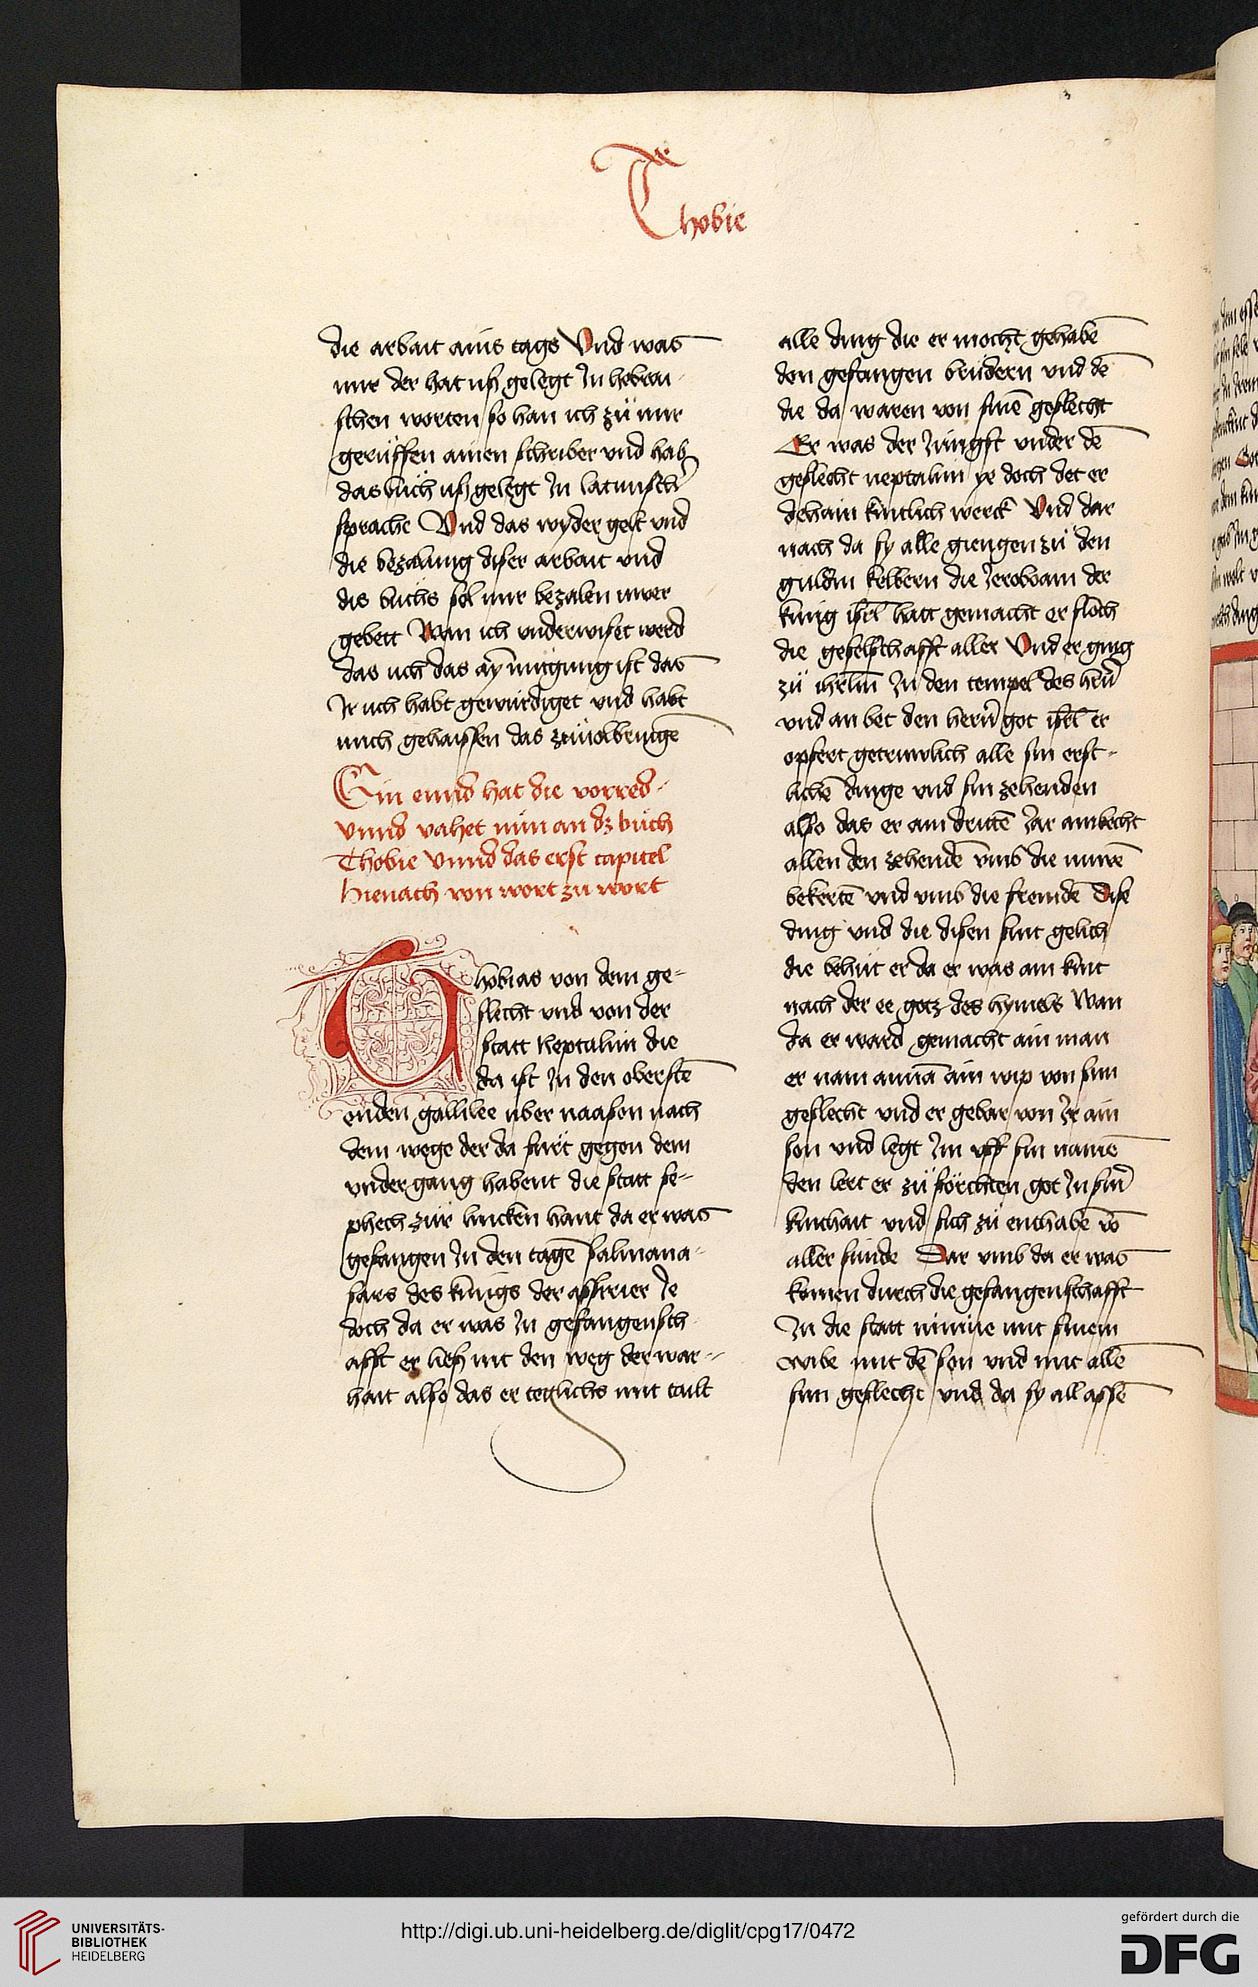 Thobie
die arbait ains tags Und was
mir der hat uß gelegt Jn hebrai-
schen worten so han ich zü mir
gerüffen ainen schriber und hab
das büch uß gelegt Jn latinisch
sprache Und das wyder gelt und
die bezalung diser arbait und
dis büchs sol mir bezalen uwer
gebett Wan ich underwiset werd
das uch das ay müigung ist das
Jr uch habt gewürdiget und habt
mich gehaissen das zü volbringē
Ein ennd hat die vorred
vnnd vahet nun an dz büch
Thobie vnnd das erst capitel
hienach von wort zu wort
Thobias von dem ge-
slecht und von der
statt Neptalim die
da ist Jn den oberstē
enden gallilee uber naason nach
dem wege der da fürt gegen dem
undergang habent die statt se-
phech zür lincken hant da er was
gefangen Jn den tagē salmana-
sars des künigs der assirier Je
doch da er was Jn gefangensch
afft er ließ nit den weg der war-
hait also das er teglichs mit tailt
alle ding die er mocht gehabē
den gefangen brüdern und dē
die da waren von sinē geslecht
Er was der Jüngst under dē
geslecht neptalim ye doch det er
dehain kintlich werck Und dar
nach da sy alle giengen zü den
guldin kelbern die Jeroboam der
küng isrl hatt gemacht er floch
die geselschafft aller Und er ging
zü ihrlm Jn den tempel des hern
und an bet den hern got isrl er
opfert getruwlich alle sin erst-
lichē dinge und sin zehenden
also das er am drittē Jar ambecht
allen den zehendē umb die nuwē
bekertē und umb die fremdē Dise
ding und die disen sint gelich
die behüt er da er was ain kint
nach der ee gotz des hymels Wan
da er ward gemacht ain man
er nam annā ain wip von sim
geslecht und er gebar von Jr ain
son und legt Jm uff sin namē
den lert er zü förchten got Jn sinr
kinthait und sich zü enthabē vō
aller sünde Dar umb da er was
komen durch die gefangenschafft
Jn die statt ninive mit sinem
wibe mit dē son und mit allē
sim geslecht und da sy all assē
UNIVERSITÄTS-
BIBLIOTHEK
HEIDELBERG
http://digi.ub.uni-heidelberg.de/diglit/cpg17/0472
gefördert durch die
DFG